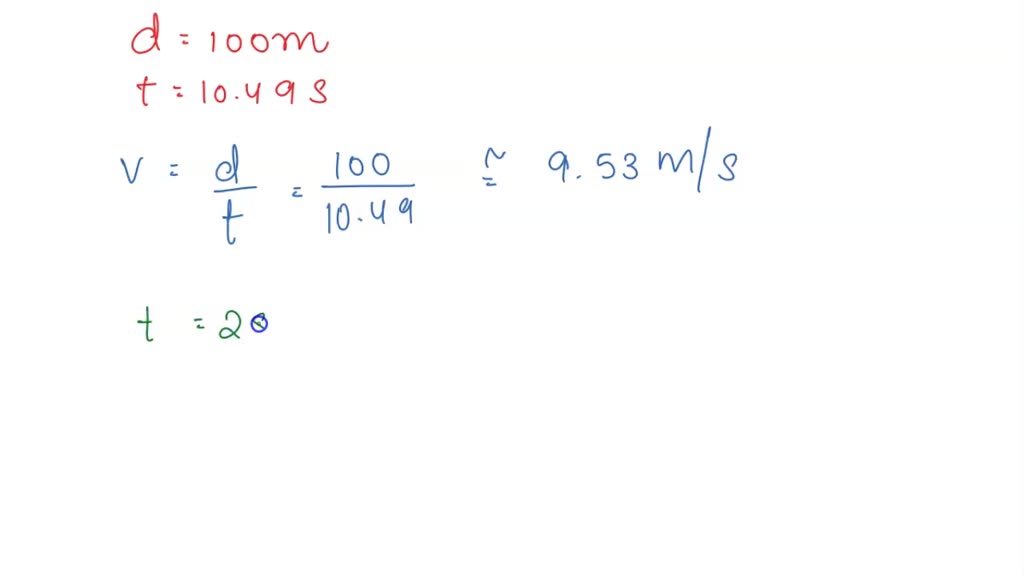 d = 100m
t = 10.49 s
v = d/t = 100/10.49 ≅ 9.53 m/s
t = 2